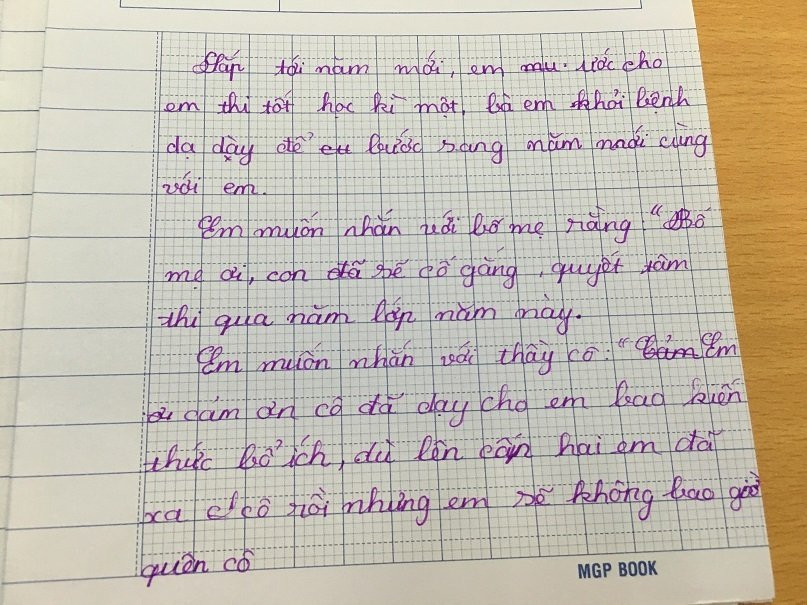 Sắp tới năm mới, em mu ước cho
em thi tốt học kì một, bà em khỏi bệnh
dạ dày để bước sang năm mới cùng
với em.
Em muốn nhắn với bố mẹ rằng "Bố
mẹ ơi, con đã sẽ cố gắng, quyết tâm
thi qua năm lớp năm này.
Em muốn nhắn với thầy cô: "Cảm Em
cám ơn cô đã dạy cho em bao kiến
thức bổ ích, dù lên cấp hai em đã
xa cô rồi nhưng em sẽ không bao giờ
quên cô
MGP BOOK